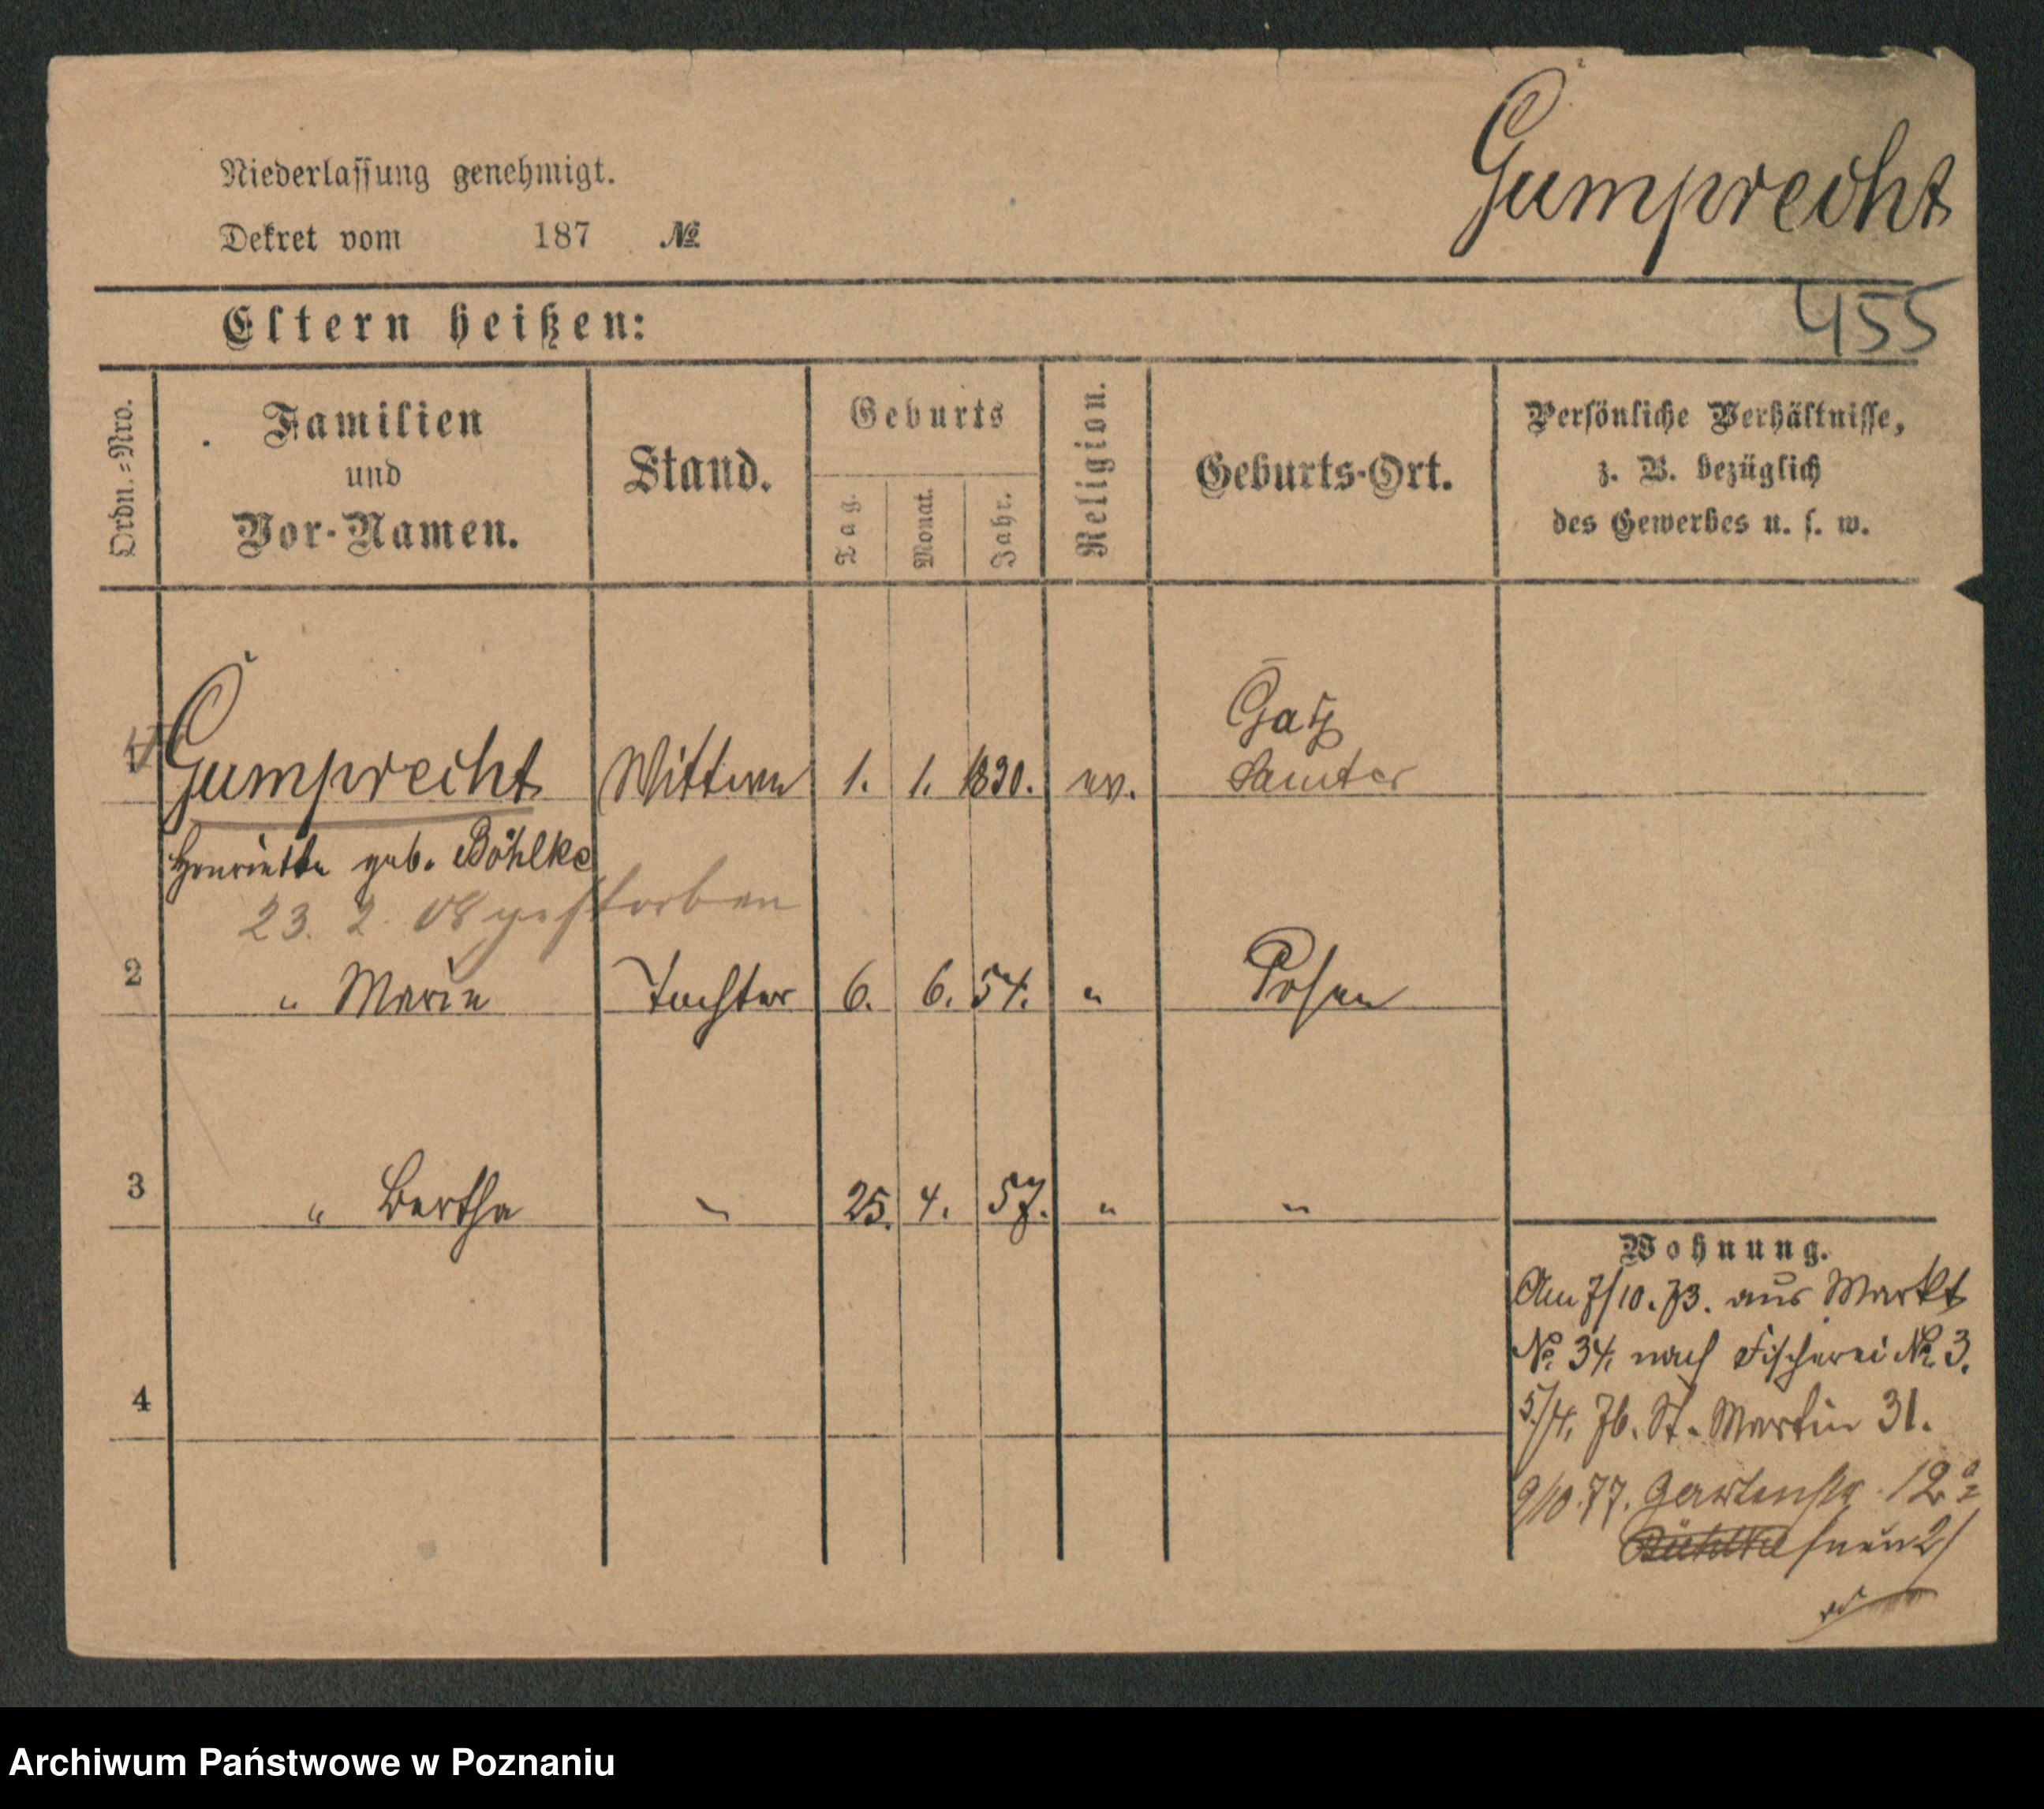 Gumprecht
Niederlassung genehmigt.
Dekret vom 187 №
455
Eltern heißen:
Ordn.=Nro.
Familien
und
Vor-Namen.
Stand.
Geburts
Tag.
Monat.
Jahr.
Religion.
Geburts-Ort.
Persönliche Verhältnisse,
z. B. bezüglich
des Gewerbes u. s. w.
Gumprecht Wittwe 1. 1. 1830. ev.
Samter
Henriette geb. Böhlke
23. 2. 08 gestorben
2 " Marie Tochter 6. 6. 54. " Posen
3 " Bertha " 25. 4. 57. " "
Wohnung.
Am 7/10. 73. aus Markt
№ 34, nach Fischerei № 3.
5/4. 76. St. Martin 31.
9/10. 77. Gartenstr. 12a
4
Archiwum Państwowe w Poznaniu